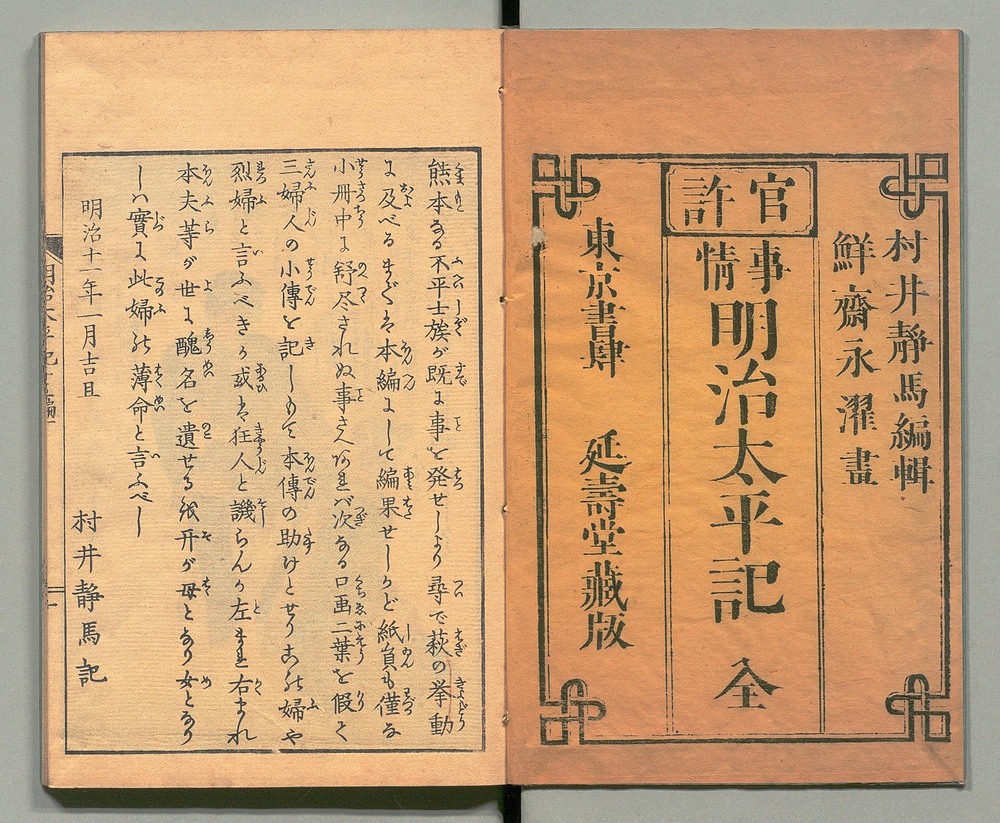 村井靜馬編輯
鮮齋永濯畫
官許
事情
明治太平記 全
東京書肆 延壽堂藏版
熊本なる不平士族が既に事を発せしより尋で萩の挙動
に及べるまでは本編にして編果せしかど紙員も僅な
小冊中に舒尽されぬ事さへあれば次なる口画二葉を假て
三婦人の小傳を記しもて本傳の助けとせりこの婦や
烈婦と言ふべきか或は狂人と譏らんか左まれ右まれ
本夫等が世に醜名を遺せる
が母となり女となり
しハ實に此婦の薄命と言ふべし
明治十一年一月吉旦
村井静馬記
明治太平記